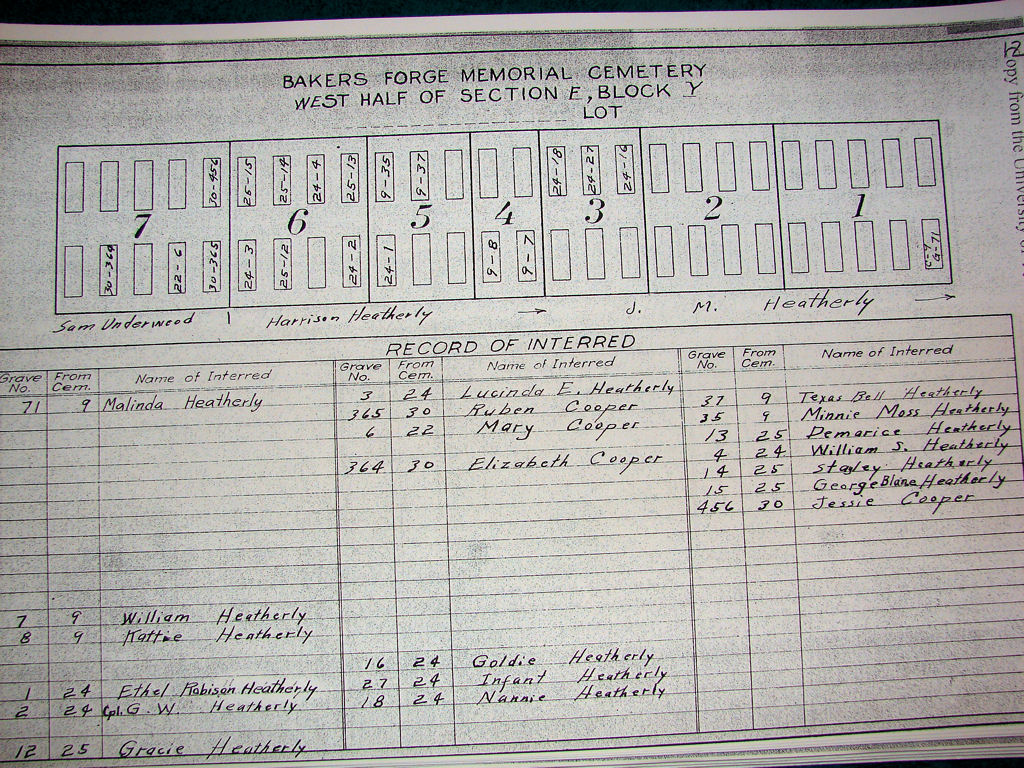 BAKERS FORGE MEMORIAL CEMETERY
WEST HALF OF SECTION E, BLOCK Y
LOT
30-456 25-15 25-14 24-4 25-13 9-35 9-37 24-18 24-27 24-16
7 6 5 4 3 2 1
30-364 22-6 30-365 24-3 25-12 24-2 24-1 9-8 9-7 G-71
Sam Underwood Harrison Heatherly → J. M. Heatherly →
RECORD OF INTERRED
Grave No. From Cem. Name of Interred
71 9 Malinda Heatherly
7 9 William Heatherly
8 9 Kattie Heatherly
1 24 Ethel Robison Heatherly
2 24 Cpl. G. W. Heatherly
12 25 Gracie Heatherly
Grave No. From Cem. Name of Interred
3 24 Lucinda E. Heatherly
365 30 Ruben Cooper
6 22 Mary Cooper
364 30 Elizabeth Cooper
16 24 Goldie Heatherly
27 24 Infant Heatherly
18 24 Nannie Heatherly
Grave No. From Cem. Name of Interred
37 9 Texas Bell Heatherly
35 9 Minnie Moss Heatherly
13 25 Demarice Heatherly
4 24 William S. Heatherly
14 25 Stagley Heatherly
15 25 George Blane Heatherly
456 30 Jessie Cooper
Copy from the University of